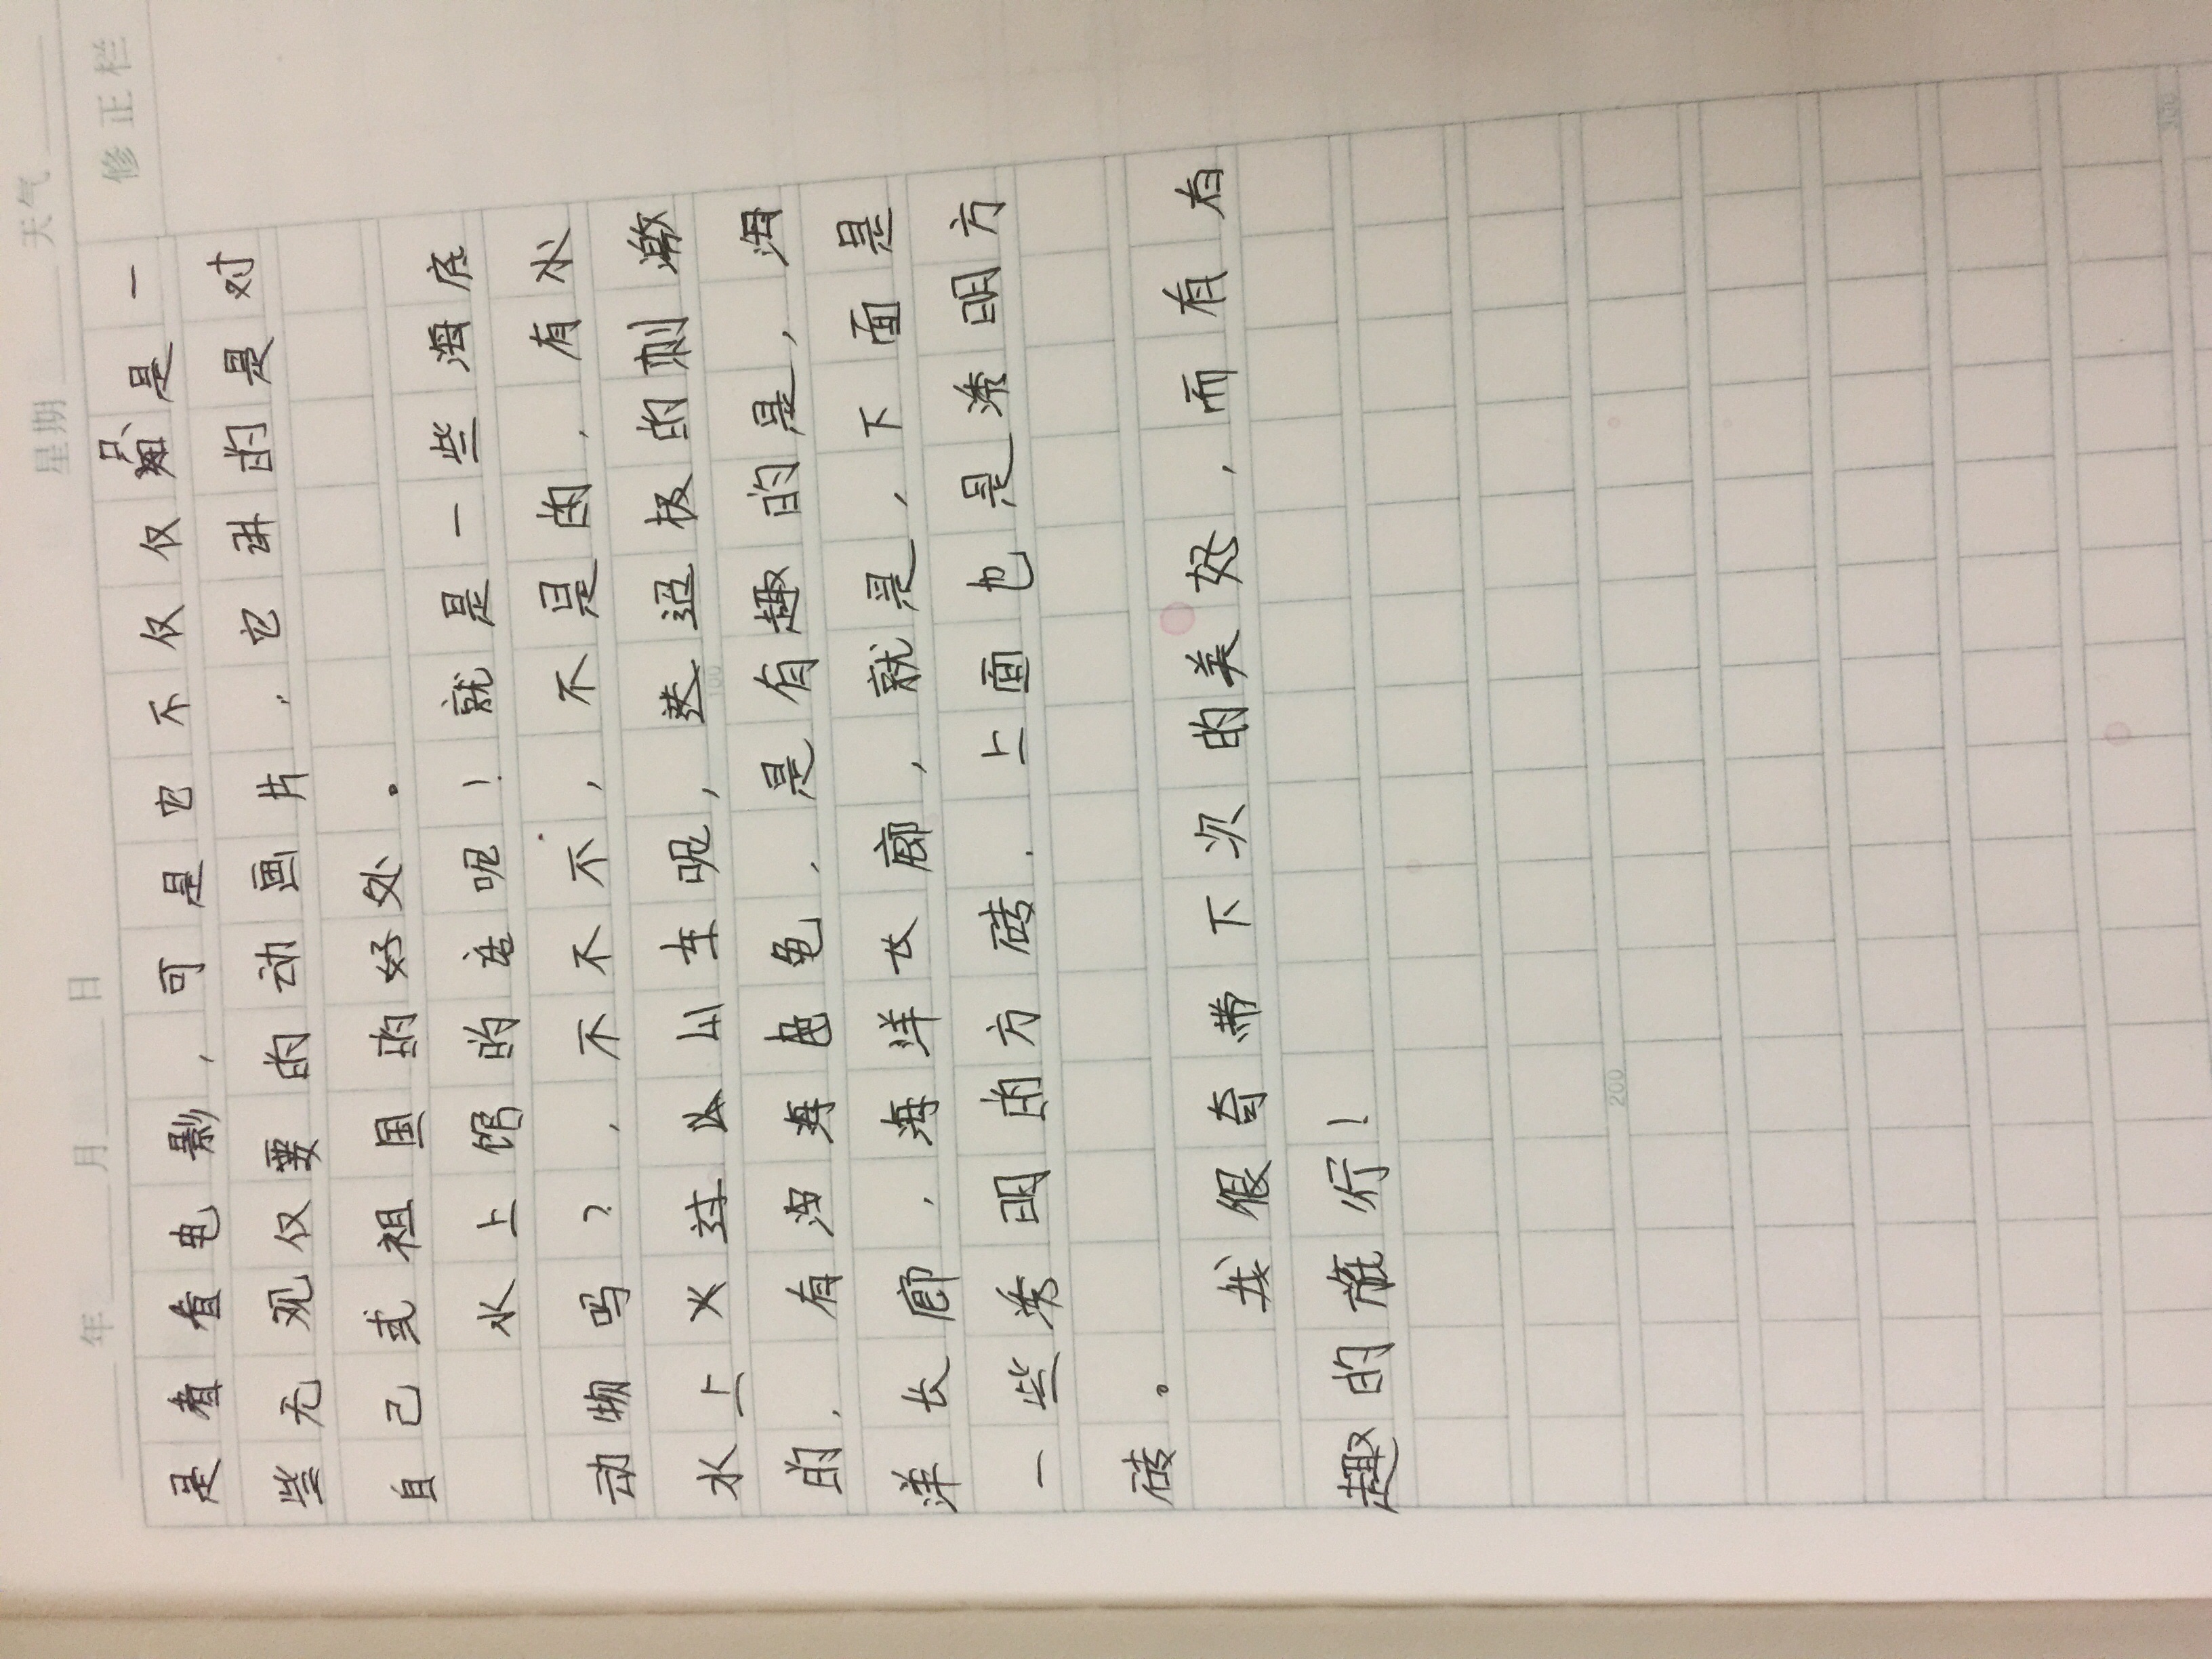 年 月 日 星期 天气
修正栏
是看看电影，可是它不仅仅只是一
些无观仅要的动画片，它讲的是对
自己或祖国的好处。
水上馆的话呢！就是一些海底
动物吗？，不不不，不是的，有水
水上火过山车呢，送迢极的刺激
的，有海龟，是有趣的是，海
洋长廊，海洋长廊，就是，下面是
一些透明的方砖，上面也是透明方
砖。
我很奇带下次的美好，而有有
趣的旅行！
100
200
300